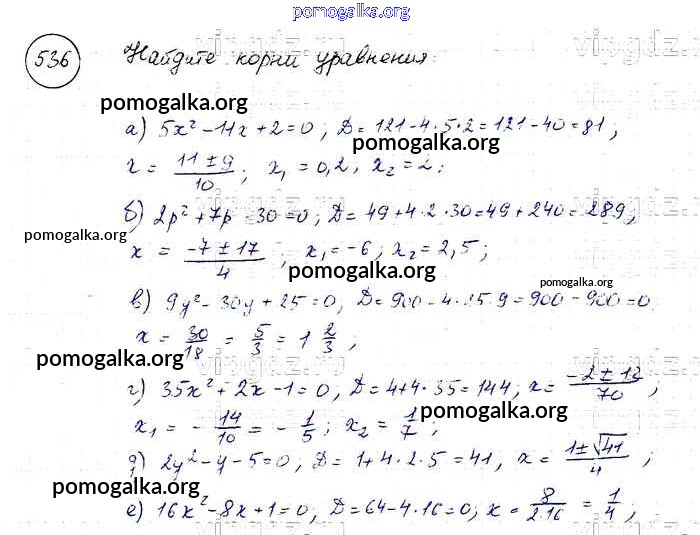 pomogalka.org
536 Найдите корни уравнения:
pomogalka.org
а) 5x² - 11x + 2 = 0; D = 121 - 4·5·2 = 121 - 40 = 81;
pomogalka.org
x = (11 ± 9)/10; x₁ = 0,2, x₂ = 2;
pomogalka.org
б) 2p² + 7p - 30 = 0; D = 49 + 4·2·30 = 49 + 240 = 289;
pomogalka.org
x = (-7 ± 17)/4; x₁ = -6; x₂ = 2,5;
pomogalka.org
pomogalka.org
в) 9y² - 30y + 25 = 0; D = 900 - 4·25·9 = 900 - 900 = 0
x = 30/18 = 5/3 = 1 2/3;
pomogalka.org
г) 35x² + 2x - 1 = 0, D = 4 + 4·35 = 144, x = (-2 ± 12)/70;
x₁ = - 14/10 = - 1/5; x₂ = 1/7;
pomogalka.org
д) 2y² - y - 5 = 0; D = 1 + 4·2·5 = 41, x = (1 ± √41)/4;
pomogalka.org
pomogalka.org
е) 16x² - 8x + 1 = 0, D = 64 - 4·16 = 0; x = 8/(2·16) = 1/4;